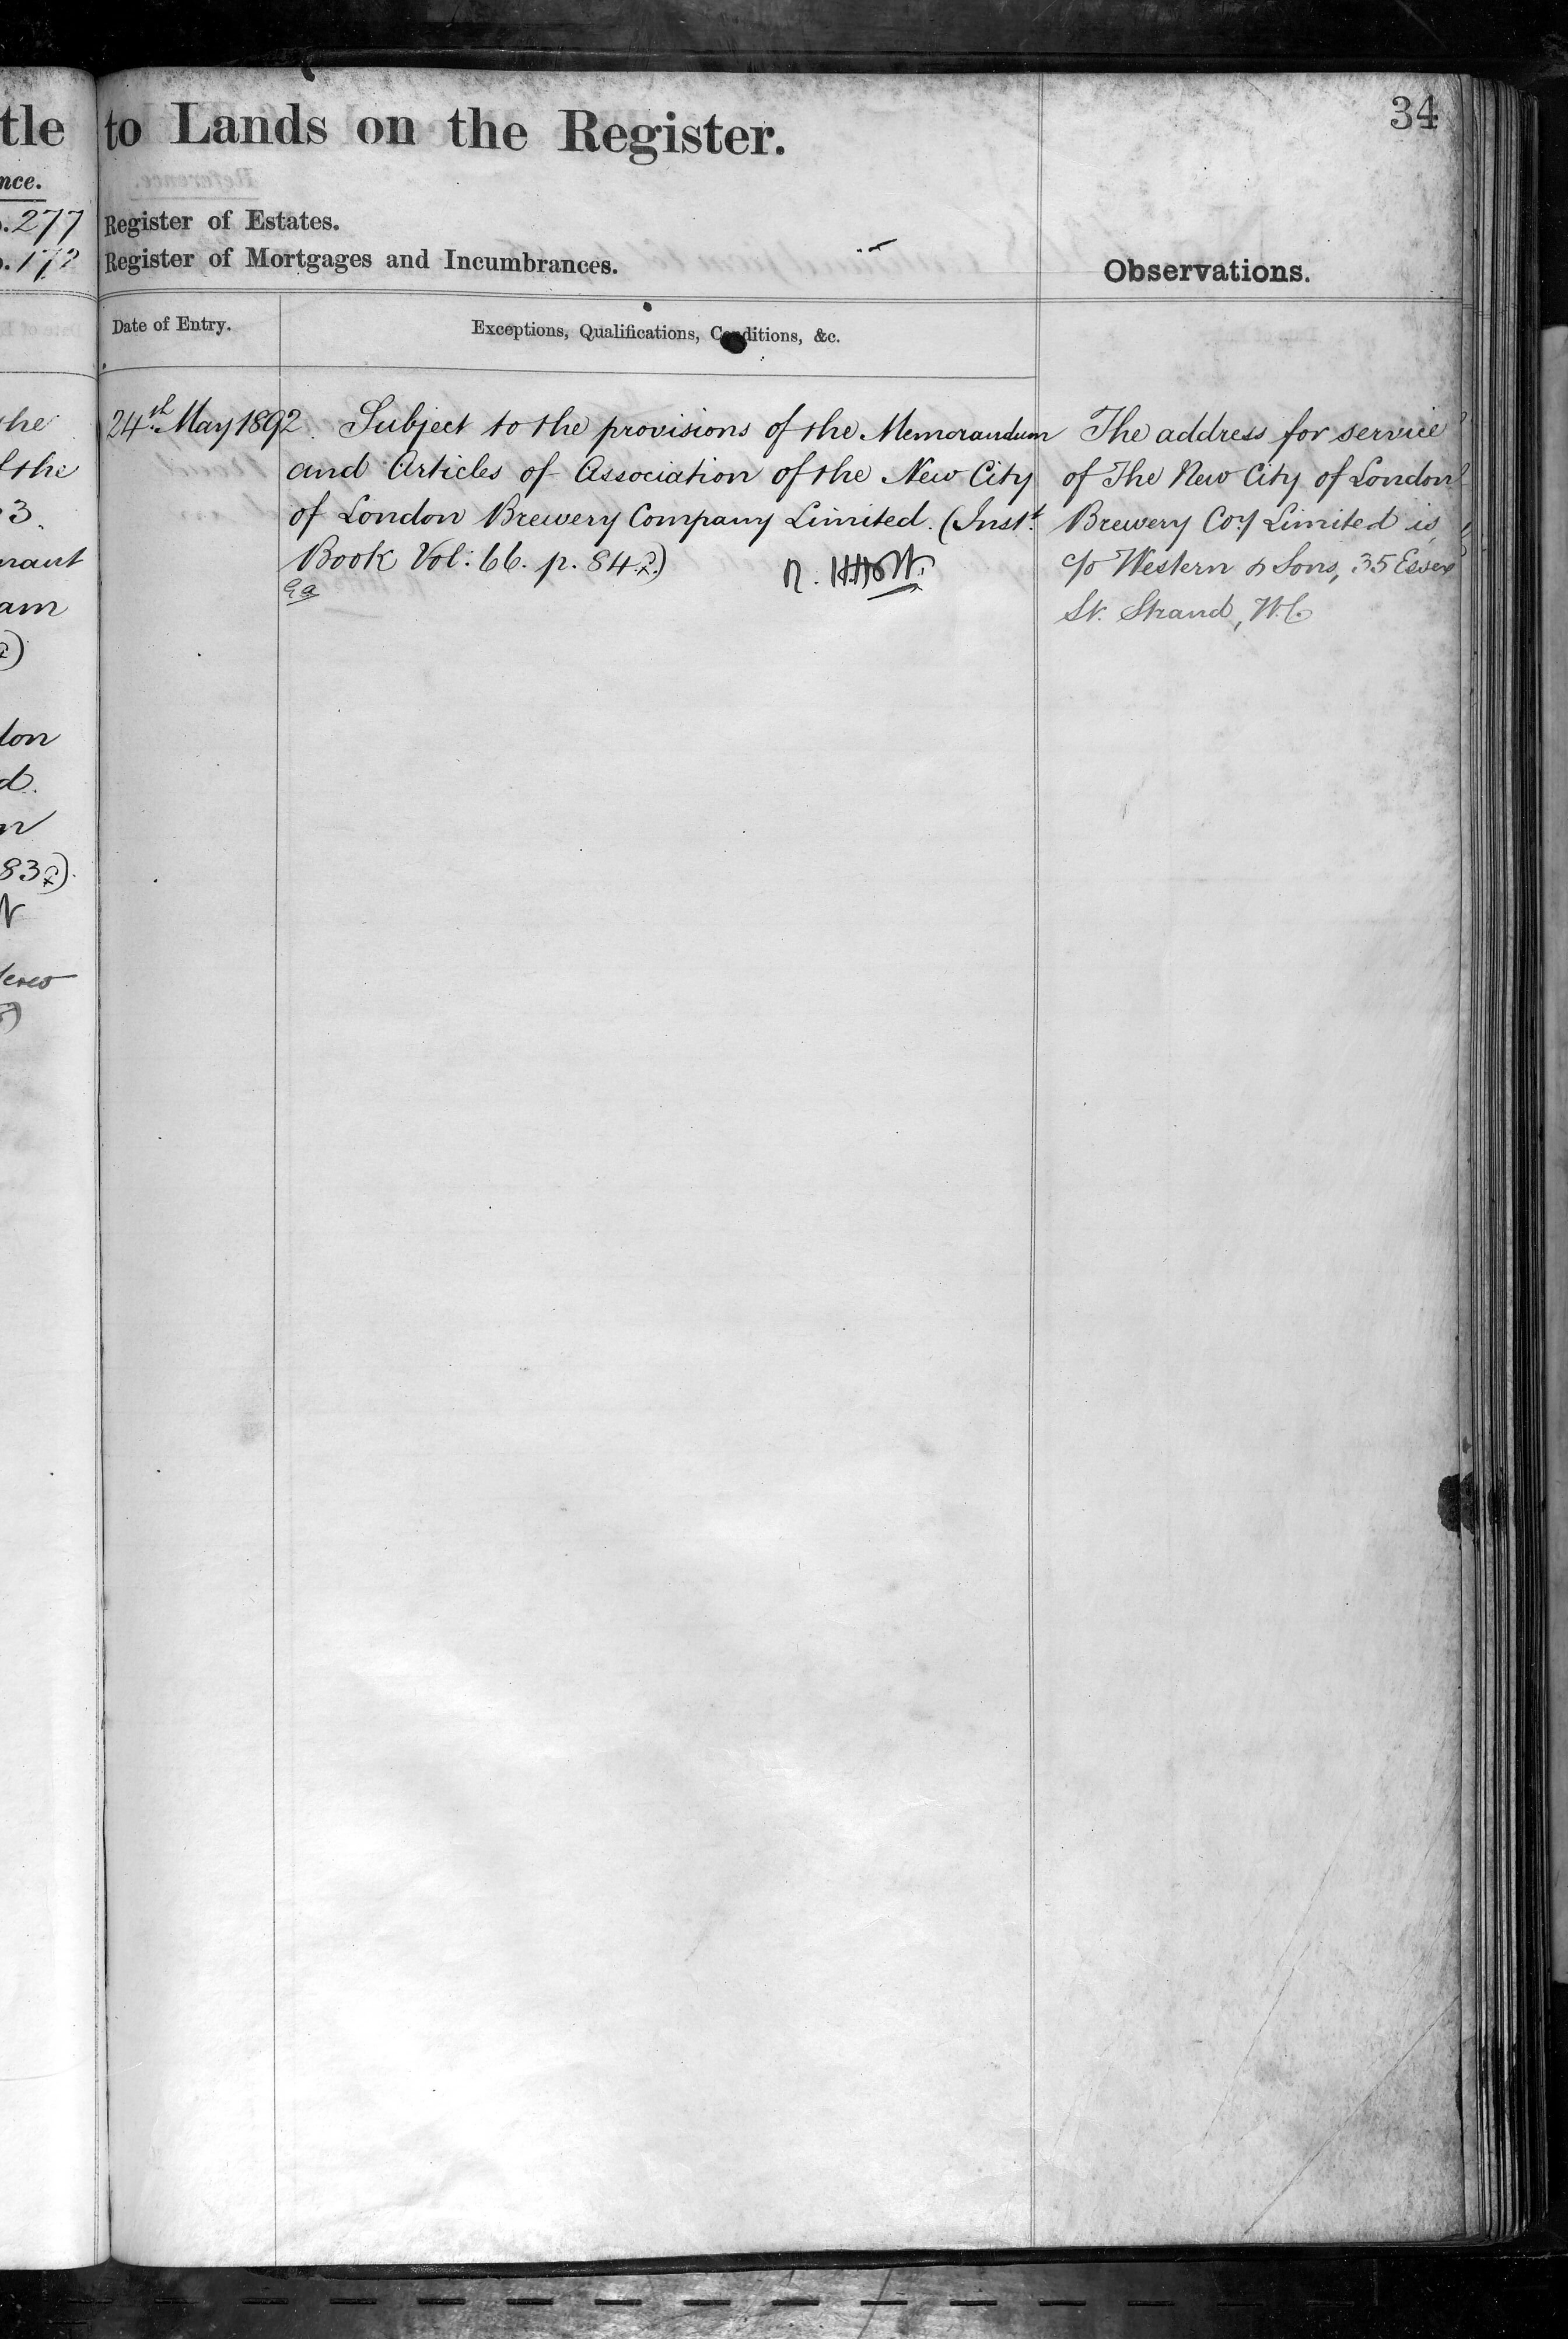 34
tle to Lands on the Register.
nce.
.277 Register of Estates.
Register of Mortgages and Incumbrances.
Observations.
Date of Entry.
Exceptions, Qualifications, Conditions, &c.
24th May 1892. Subject to the provisions of the Memorandum
and Articles of Association of the New City
of London Brewery Company Limited. (Inst.t
Book Vol: 66. p. 84
The address for service
of The New City of London
Brewery Coy Limited is
c/o Western & Sons, 35 Essex
St. Strand, W.C.
the
f the
3.
nant
am
don
d.
n
83